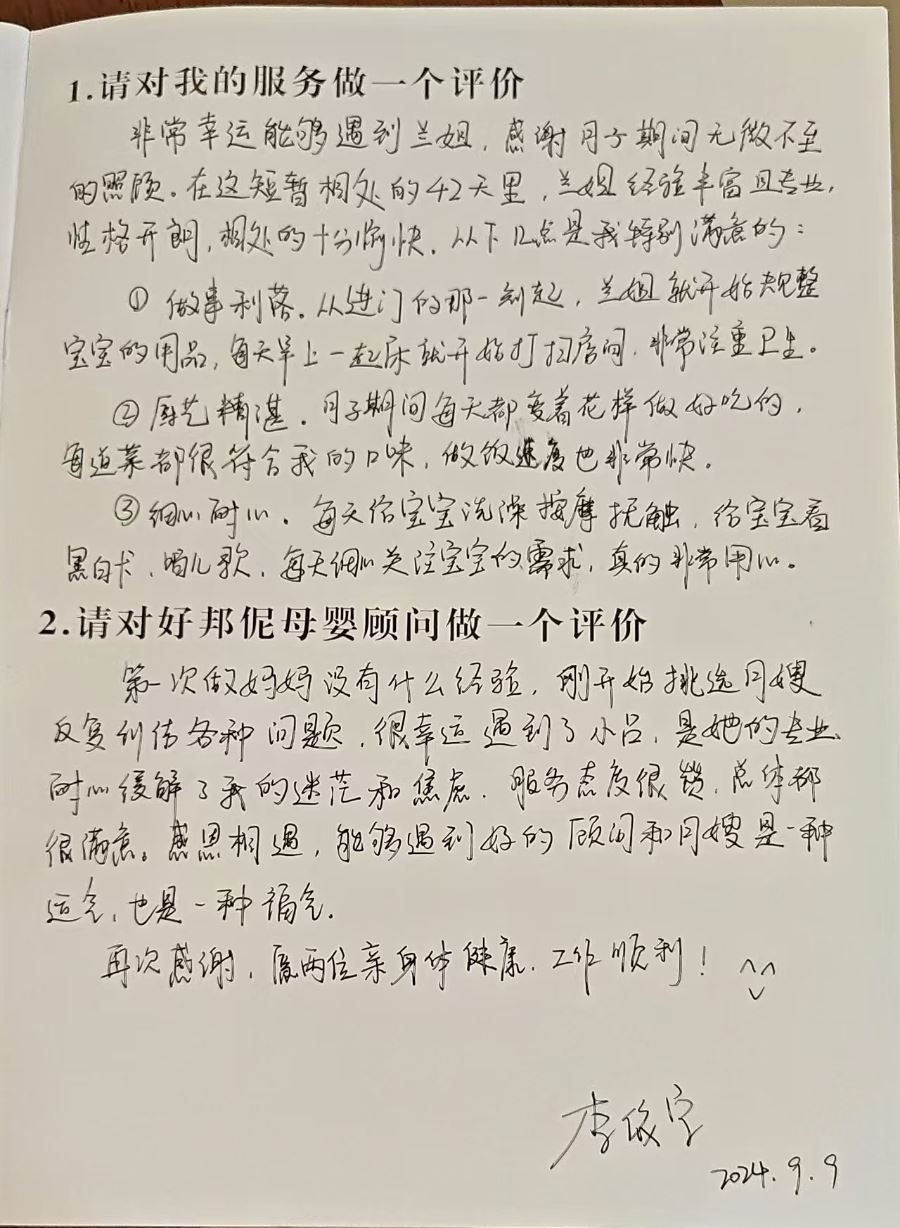 1.请对我的服务做一个评价
非常幸运能够遇到兰姐，感谢月子期间无微不至
的照顾。在这短暂相处的42天里，兰姐经验丰富且专业，
性格开朗，相处的十分愉快。以下几点是我特别满意的：
① 做事利落。从进门的那一刻起，兰姐就开始规整
宝宝的用品，每天早上一起床就开始打扫房间，非常注重卫生。
② 厨艺精湛。月子期间每天都变着花样做好吃的，
每道菜都很符合我的口味，做饭速度也非常快。
③ 细心耐心。每天给宝宝洗澡按摩抚触，给宝宝看
黑白卡、唱儿歌，每天细心关注宝宝的需求，真的非常用心。
2.请对好邦伲母婴顾问做一个评价
第一次做妈妈没有什么经验，刚开始挑选月嫂
反复纠结各种问题，很幸运遇到了小吕，是她的专业、
耐心缓解了我的迷茫和焦虑，服务态度很赞，总体都
很满意。感恩相遇，能够遇到好的顾问和月嫂是一种
运气，也是一种福气。
再次感谢，愿两位亲身体健康，工作顺利！
2024.9.9